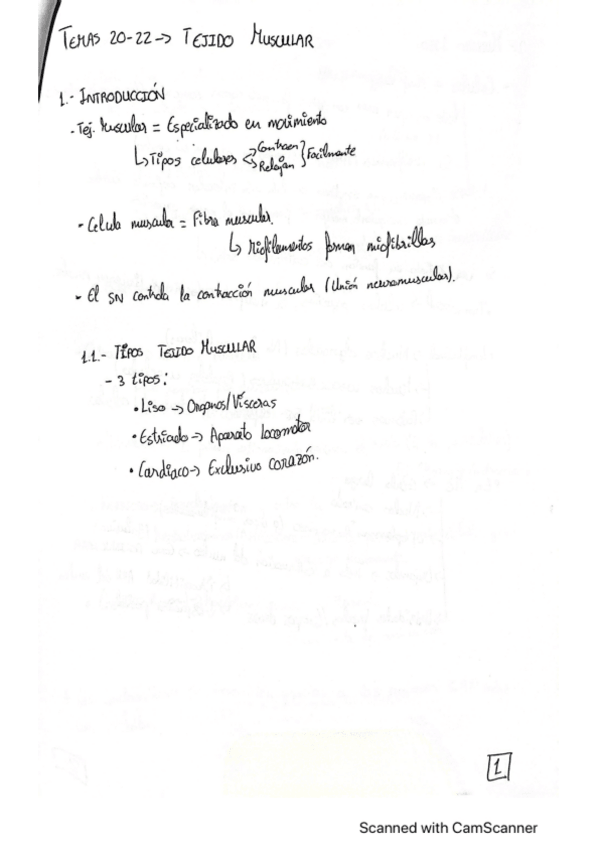 TEMAS 20-22 → TEJIDO MUSCULAR
1.- INTRODUCCIÓN
- Tej. Muscular = Especializado en movimiento
↳ Tipos celulares < Contraen Relajan } Facilmente
- Celula muscular = Fibra muscular.
↳ Miofilamentos forman miofibrillas
- El SN controla la contracción muscular (Unión neuromuscular).
1.1.- TIPOS TEJIDO MUSCULAR
- 3 tipos:
• Liso → Organos/Vísceras
• Estriado → Aparato locomotor
• Cardiaco → Exclusivo corazón.
1
Scanned with CamScanner